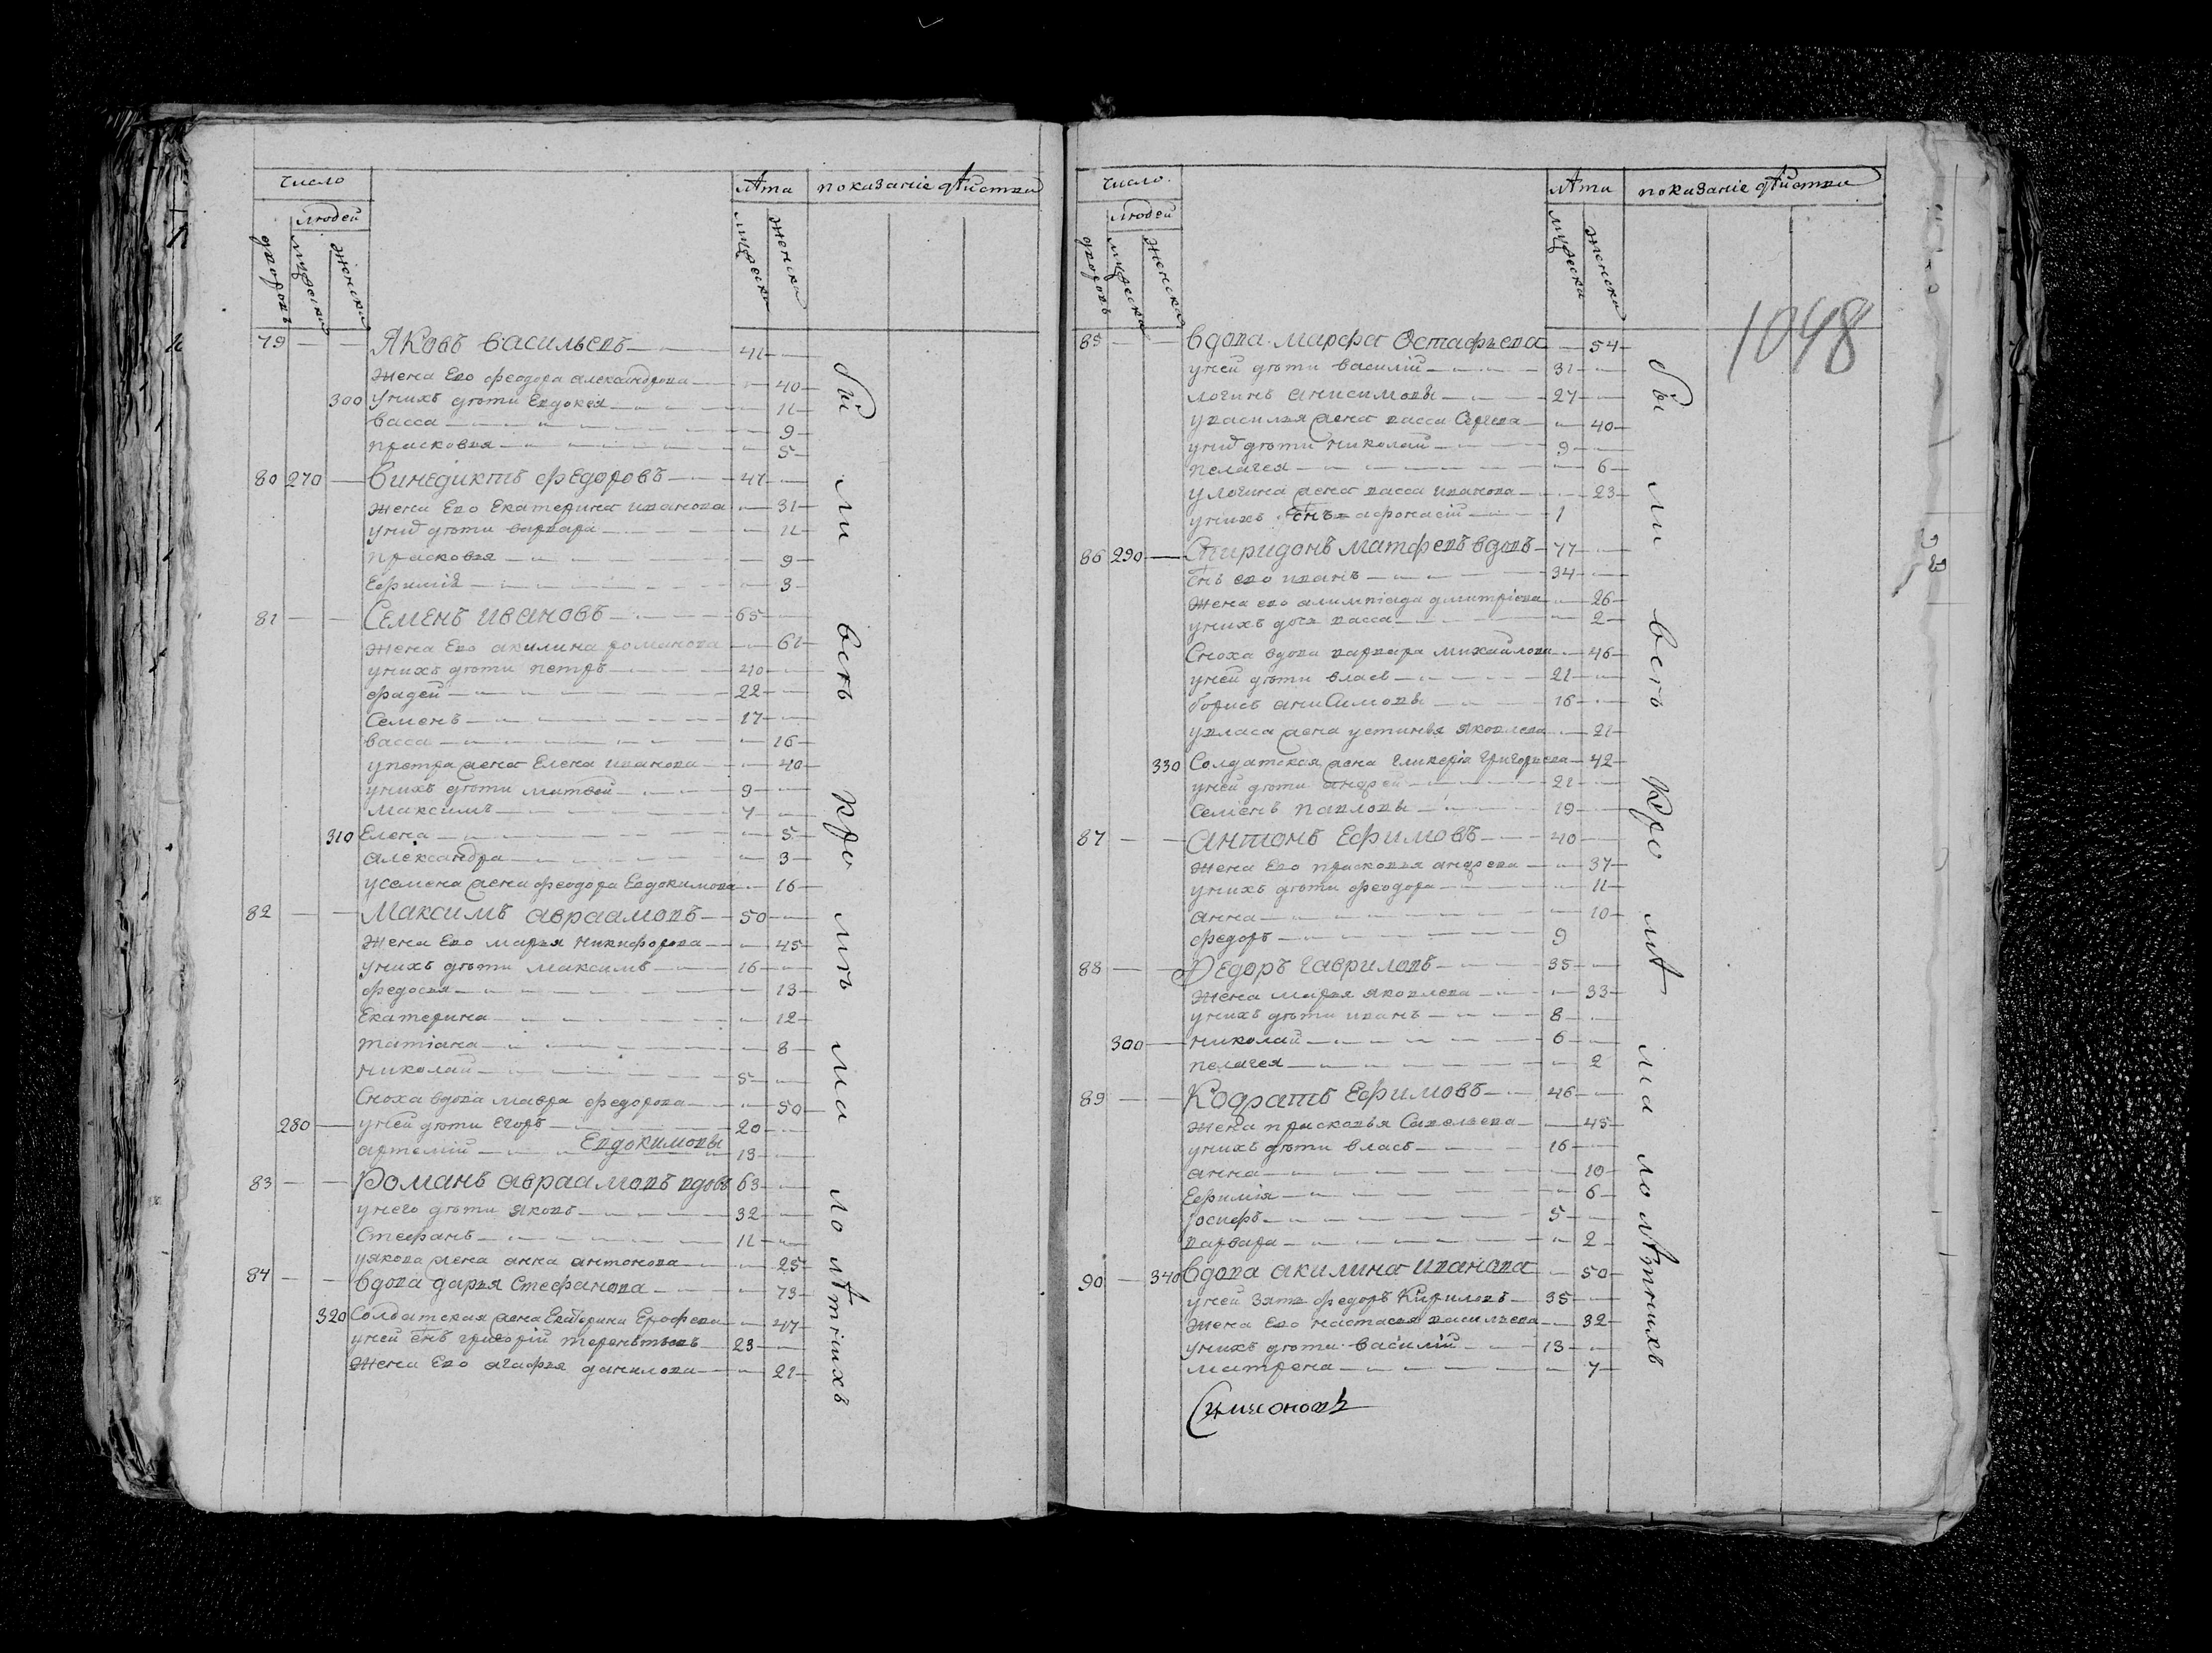 число
людей
дворовъ
мужеска
женска
лѣта
мужеска
женска
показаніе дѣйства
79 — — Яковъ васильевъ — 41 —
жена Ево феодора александрова — 40
300 унихъ дѣти Евдокея — 11
васса — 9
прасковья — 5
80 270 — Винедиктъ федоровъ — 47 —
жена Ево Екатерина иванова — 31
унихъ дѣти варвара — 11
прасковья — 9
Ефимія — 3
81 — — Семенъ ивановъ — 65 —
жена Ево акилина романова — 61
унихъ дѣти петръ — 40 —
фадей — 22 —
Семенъ — 17 —
васса — 16
упетра жена Елена иванова — 40
унихъ дѣти матвей — 9 —
максимъ — 7 —
310 Елена — 5
александра — 3
усемена жена феодора Евдокимова — 16
82 — — Максимъ авраамовъ — 50 —
жена Ево марья никифорова — 45
унихъ дѣти максимъ — 16 —
федосья — 13
Екатерина — 12
татіана — 8
николай — 5 —
Сноха вдова мавра федорова — 50
280 — уней дѣти Егоръ — 20 —
артемій — Евдокимовы 13 —
83 — — Романъ авраамовъ вдовъ 63 —
унего дѣти яковъ — 32 —
Стефанъ — 11 —
уякова жена анна антонова — 25
84 — — вдова дарья Стефанова — 73
320 Солдатская жена Екатерина Ерофеева — 47
уней снъ григорій терентьевъ 23 —
жена Ево агафья данилова — 21
были всѣ кромѣ малолѣтнихъ
число
людей
дворовъ
мужеска
женска
лѣта
мужеска
женска
показаніе дѣйства
1048
85 — — вдова марфа Остафьева — 54
уней дѣти василій — 31 —
логинъ анисимовы — 27 —
увасилья жена васса Сергеева — 40
унихъ дѣти николай — 9 —
пелагея — 6
улогина жена васса иванова — 23
унихъ снъ афонасій — 1
86 290 — Спиридонъ матфеевъ вдовъ — 77 —
снъ ево иванъ — 34 —
жена ево алимпіада дмитріева — 26
унихъ дочь васса — 2
Сноха вдова варвара михайлова — 46
уней дѣти власъ — 21 —
борисъ анисимовы — 16 —
увласа жена устинья яковлева — 21
330 Солдатская жена гликерія григорьева — 42
уней дѣти андрей — 21 —
семенъ павловы — 19 —
87 — — антонъ Ефимовъ — 40 —
жена Ево прасковья андреева — 37
унихъ дѣти феодора — 11
анна — 10
федоръ — 9
88 — — Федоръ гавриловъ — 35 —
жена марья яковлева — 33
унихъ дѣти иванъ — 8 —
300 — николай — 6 —
пелагея — 2
89 — — Кодратъ Ефимовъ — 46 —
жена прасковья Савельева — 45
унихъ дѣти власъ — 16 —
анна — 10
Ефимія — 6
Іосифъ — 5 —
варвара — 2
90 — 340 вдова акилина иванова — 50
уней зять федоръ Кириловъ — 35 —
жена Ево настасья васильева — 32
унихъ дѣти василій — 13 —
матрена — 7
были всѣ кромѣ малолѣтнихъ